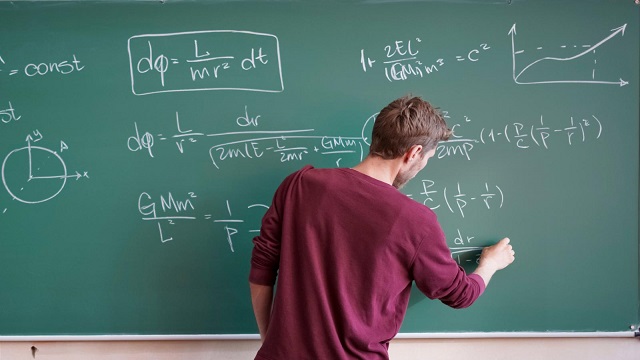 = const
dφ = L/mr² dt
1+ 2EL²/(GM)²m³ = c²
st
y
x
dφ = L/r² dr/√(2m(E - L²/2mr² + GMm/r
c²/2mp (1-(p/c(1/p - 1/r)²)
GMm²/L² = 1/p
p/c (1/p - 1/r)
dr